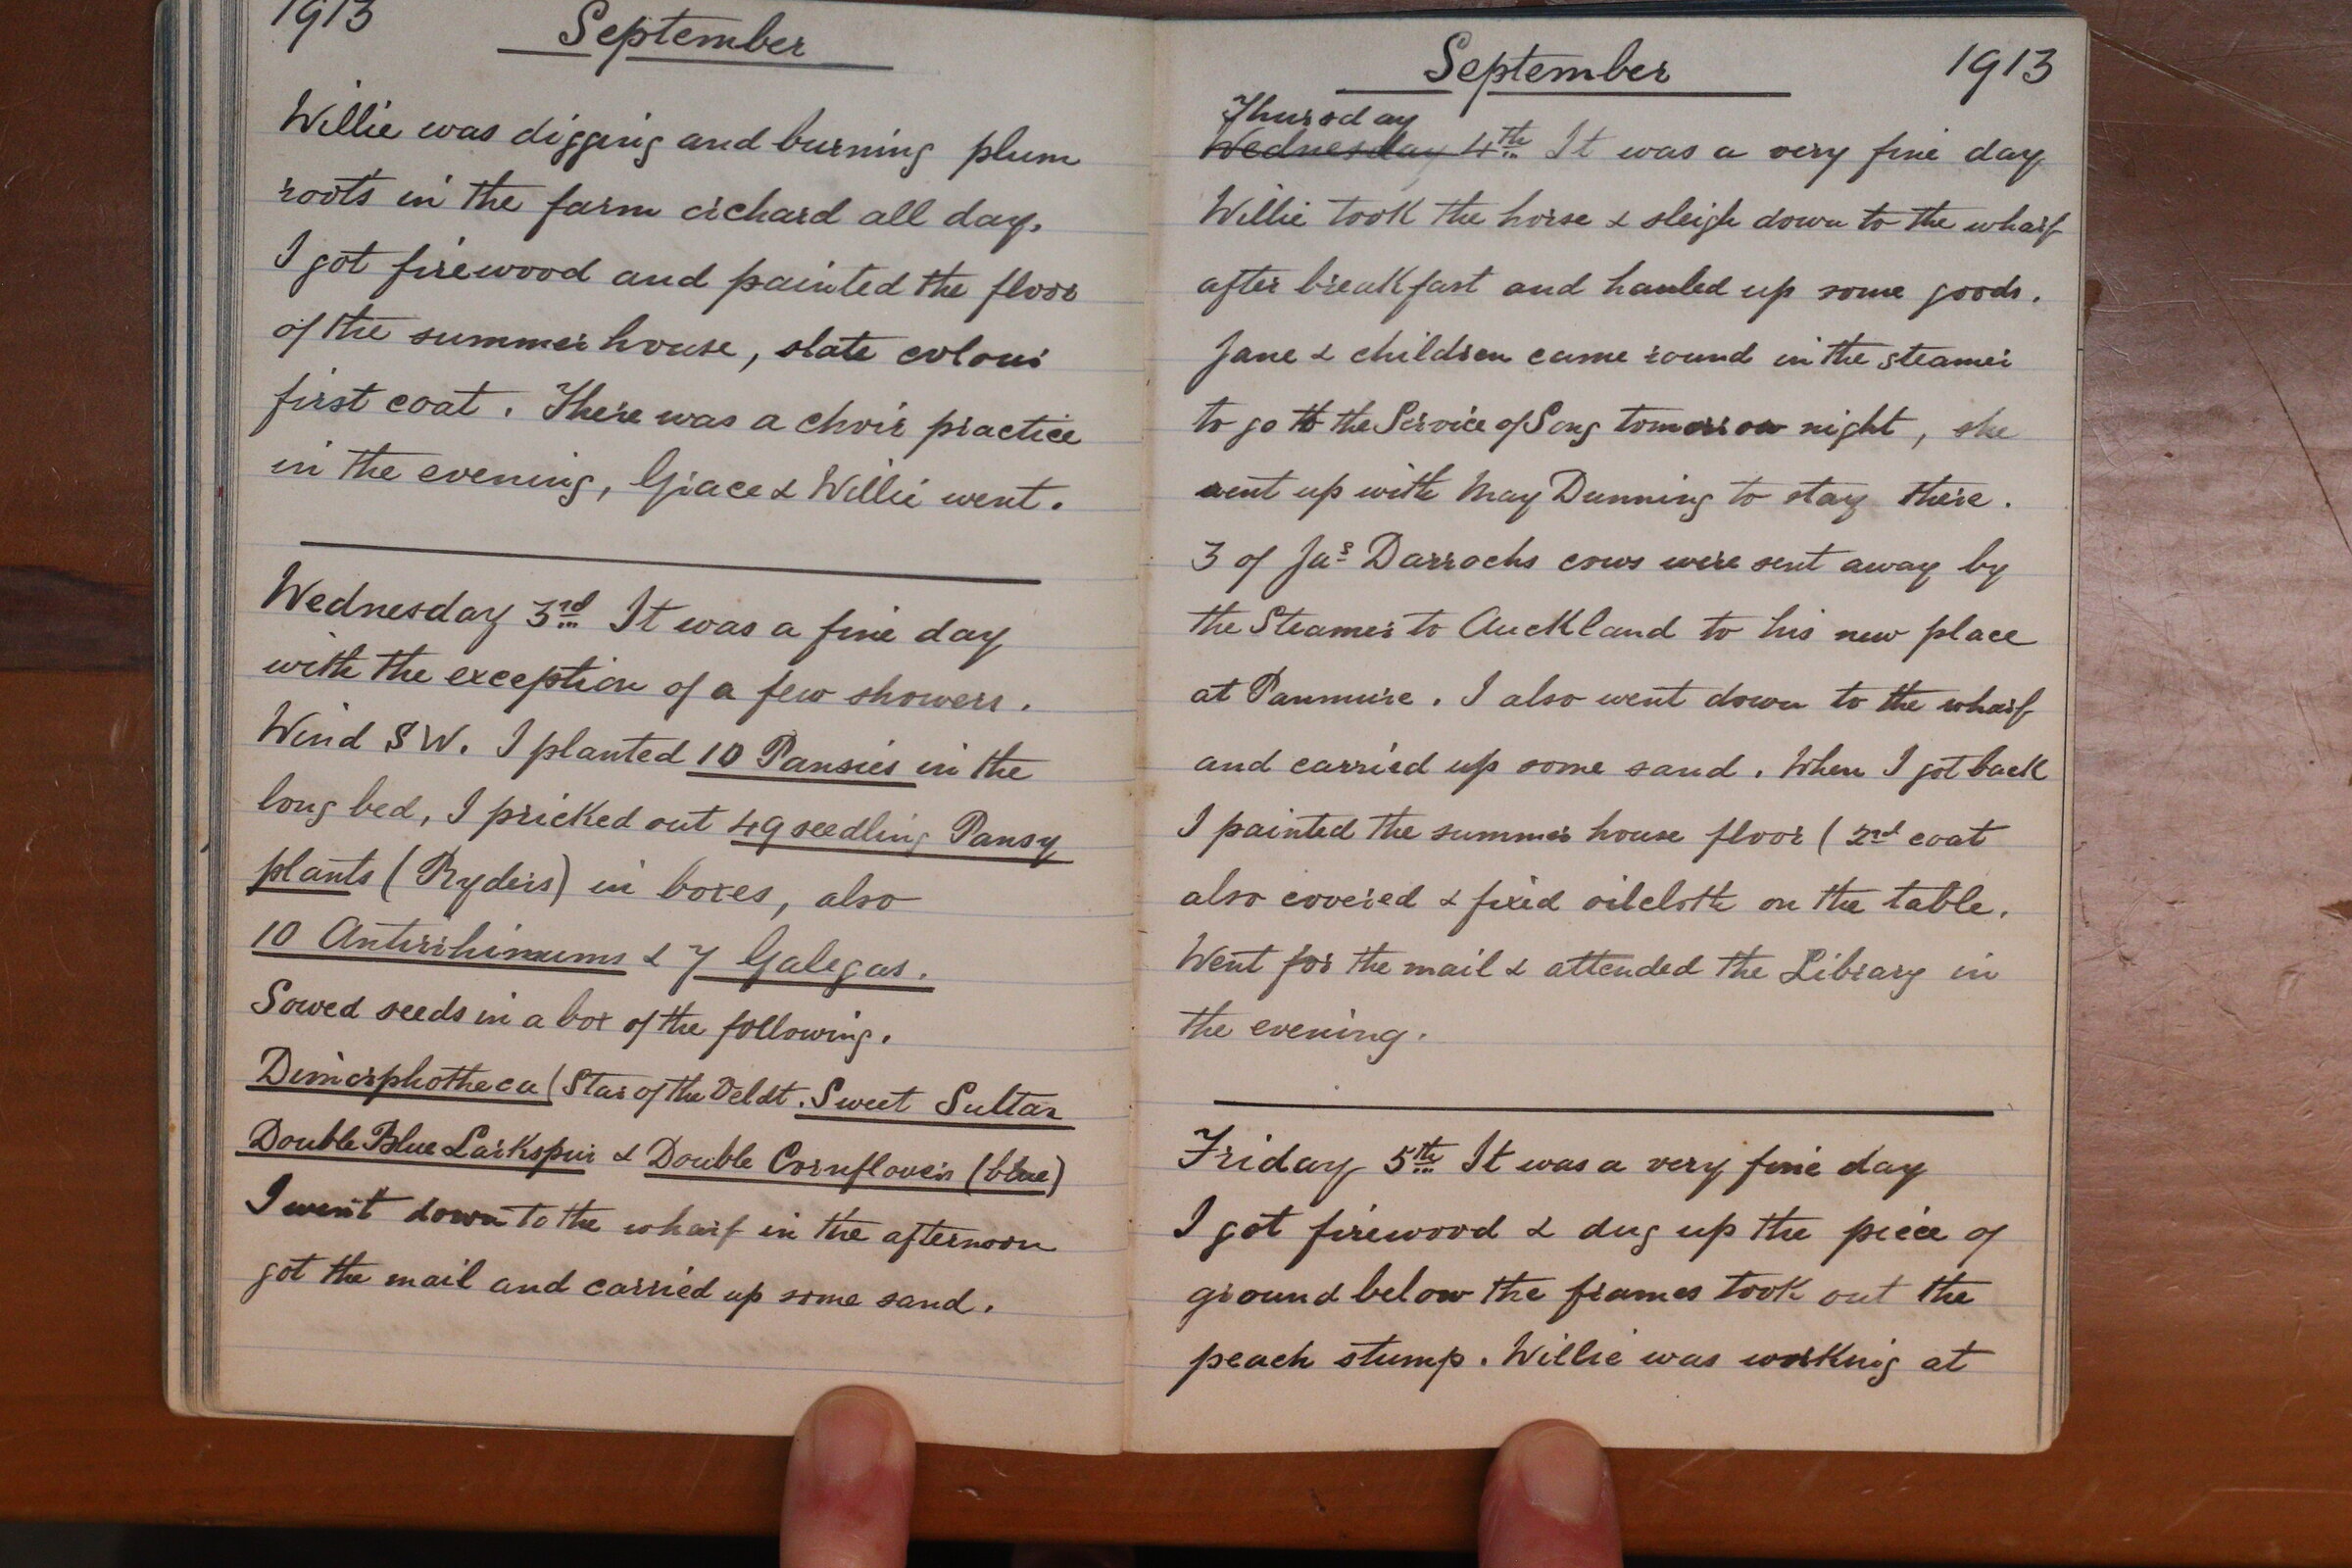 1913
September
Willie was digging and burning plum
roots in the farm orchard all day.
I got firewood and painted the floor
of the summer house, slate colour
first coat. There was a choir practice
in the evening, Grace & Willie went.
Wednesday 3rd It was a fine day
with the exception of a few showers.
Wind SW. I planted 10 Pansies in the
long bed, I pricked out 49 seedling Pansy
plants (Ryders) in boxes, also
10 Antirrhinums & 7 Galegas.
Sowed seeds in a box of the following.
Dimorphotheca (Star of the Veldt. Sweet Sultan
Double Blue Larkspur & Double Cornflowers (blue)
I went down to the wharf in the afternoon
got the mail and carried up some sand.
September 1913
Thursday
Wednesday 4th It was a very fine day
Willie took the horse & sleigh down to the wharf
after breakfast and hauled up some goods.
Jane & children came round in the steamer
to go to the Service of Song tomorrow night, she
went up with May Dunning to stay there.
3 of Jas Darrochs cows were sent away by
the Steamer to Auckland to his new place
at Panmure. I also went down to the wharf
and carried up some sand. When I got back
I painted the summer house floor (2nd coat
also covered & fixed oilcloth on the table.
Went for the mail & attended the Library in
the evening.
Friday 5th It was a very fine day
I got firewood & dug up the piece of
ground below the frames took out the
peach stump. Willie was working at